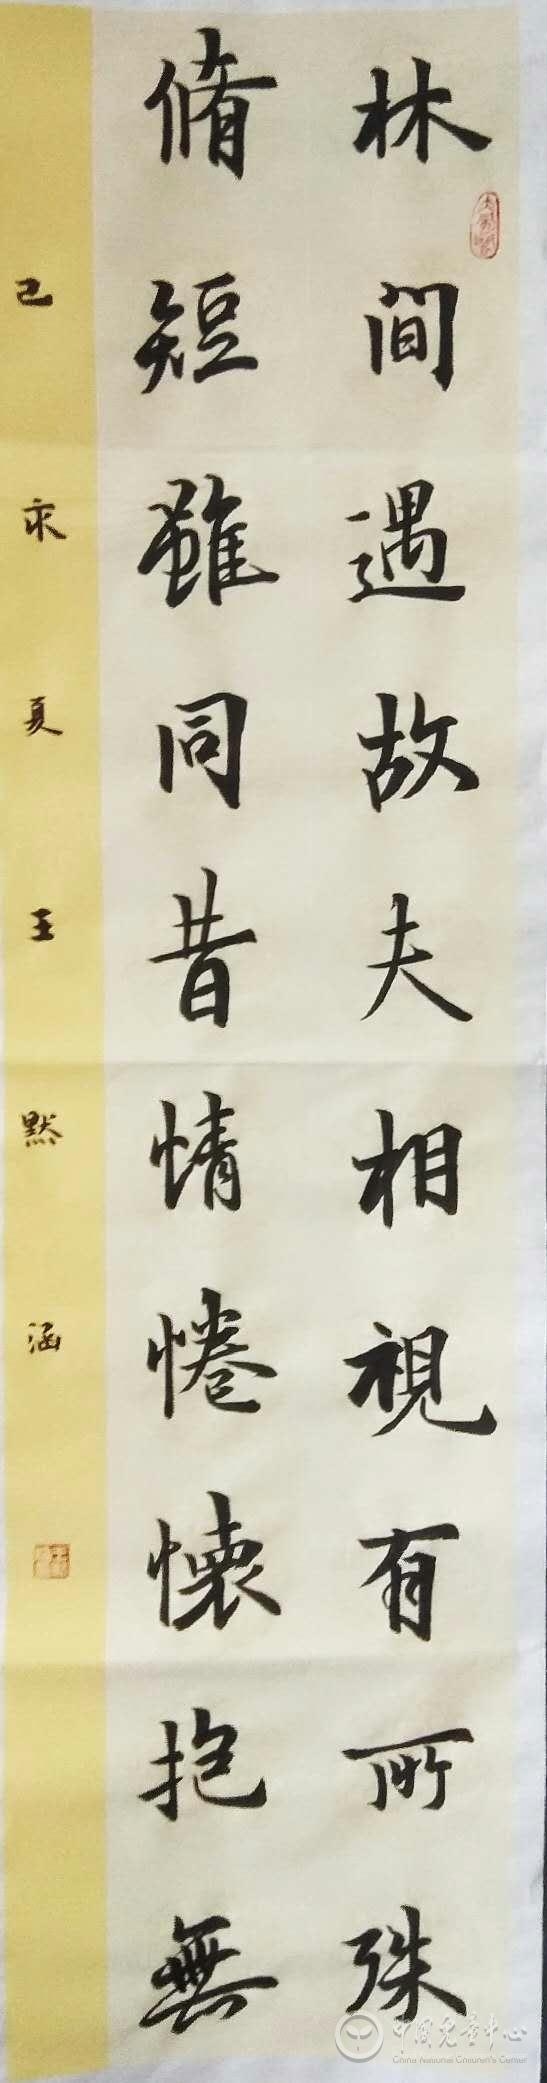 林間遇故夫相視有所殊
脩短雖同昔情惓懷抱無
己亥夏王默涵
中国儿童中心
China National Children's Center